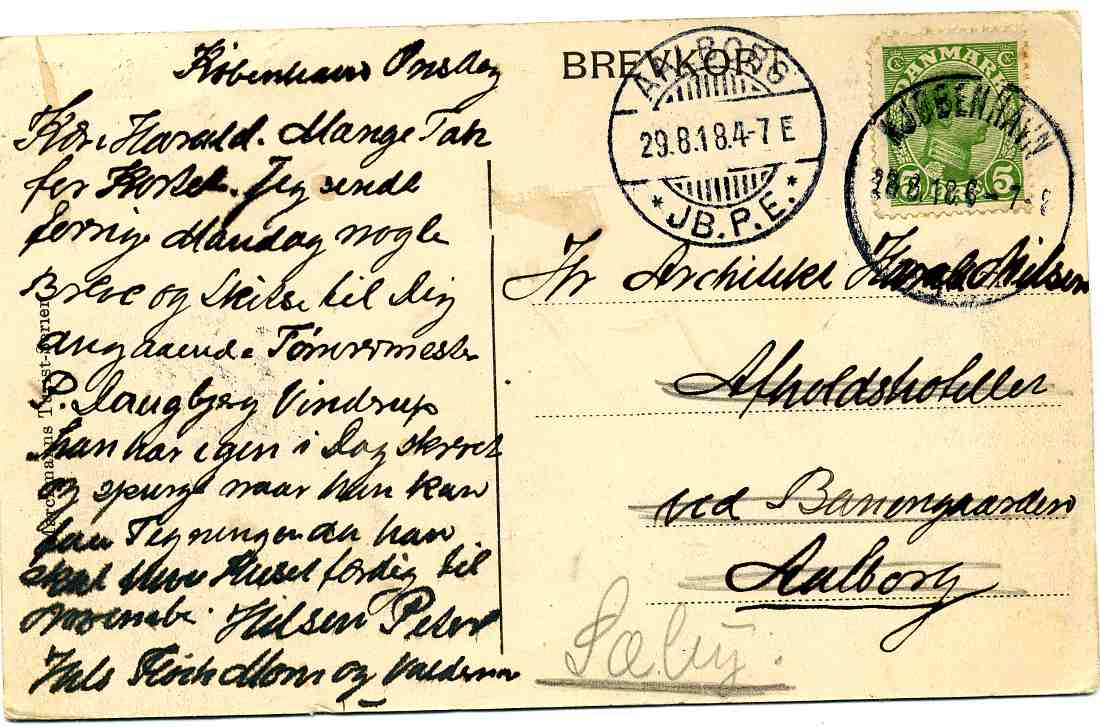 København Onsdag
Kære Harald. Mange Tak
for Kortet. Jeg sendte
forrige Mandag nogle
Breve og Skitse til Dig
angaaende Tømrermester
P. Daugbjerg Vindrup
han har igen i Dag skrevet
og spurgt naar han kan
faa Tegningen da han
skal have Huset færdig til
Hilsen Peter
Hils Moni og Valdemar
BREVKORT
AALBORG
29.8.18.4-7 E
* JB.P.E. *
DANMARK
5 5
KJØBENHAVN
28.8.18.6-7
Hr Architekt Harald Nilsen
Afholdshotellet
ved Banengaarden
Aalborg
Sæby.